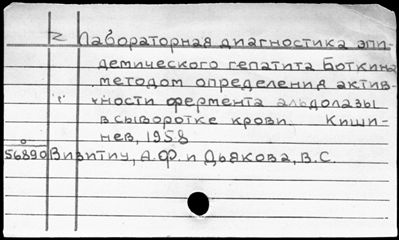 2 Лабораторная диагностика эпи-
демического гепатита Боткина
методом определения актив-
ности фермента альдолазы
в сыворотке крови. Киши-
нев, 1958
56890 Визитиу, А.Ф. и Дьякова, В.С.